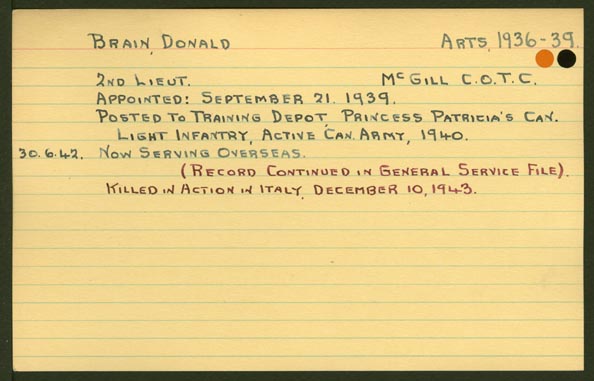 BRAIN, DONALD ARTS, 1936-39.
2ND LIEUT. McGILL C.O.T.C.
APPOINTED: SEPTEMBER 21. 1939.
POSTED TO TRAINING DEPOT, PRINCESS PATRICIA'S CAN.
LIGHT INFANTRY, ACTIVE CAN. ARMY, 1940.
30.6.42. NOW SERVING OVERSEAS.
(RECORD CONTINUED IN GENERAL SERVICE FILE).
KILLED IN ACTION IN ITALY, DECEMBER 10, 1943.